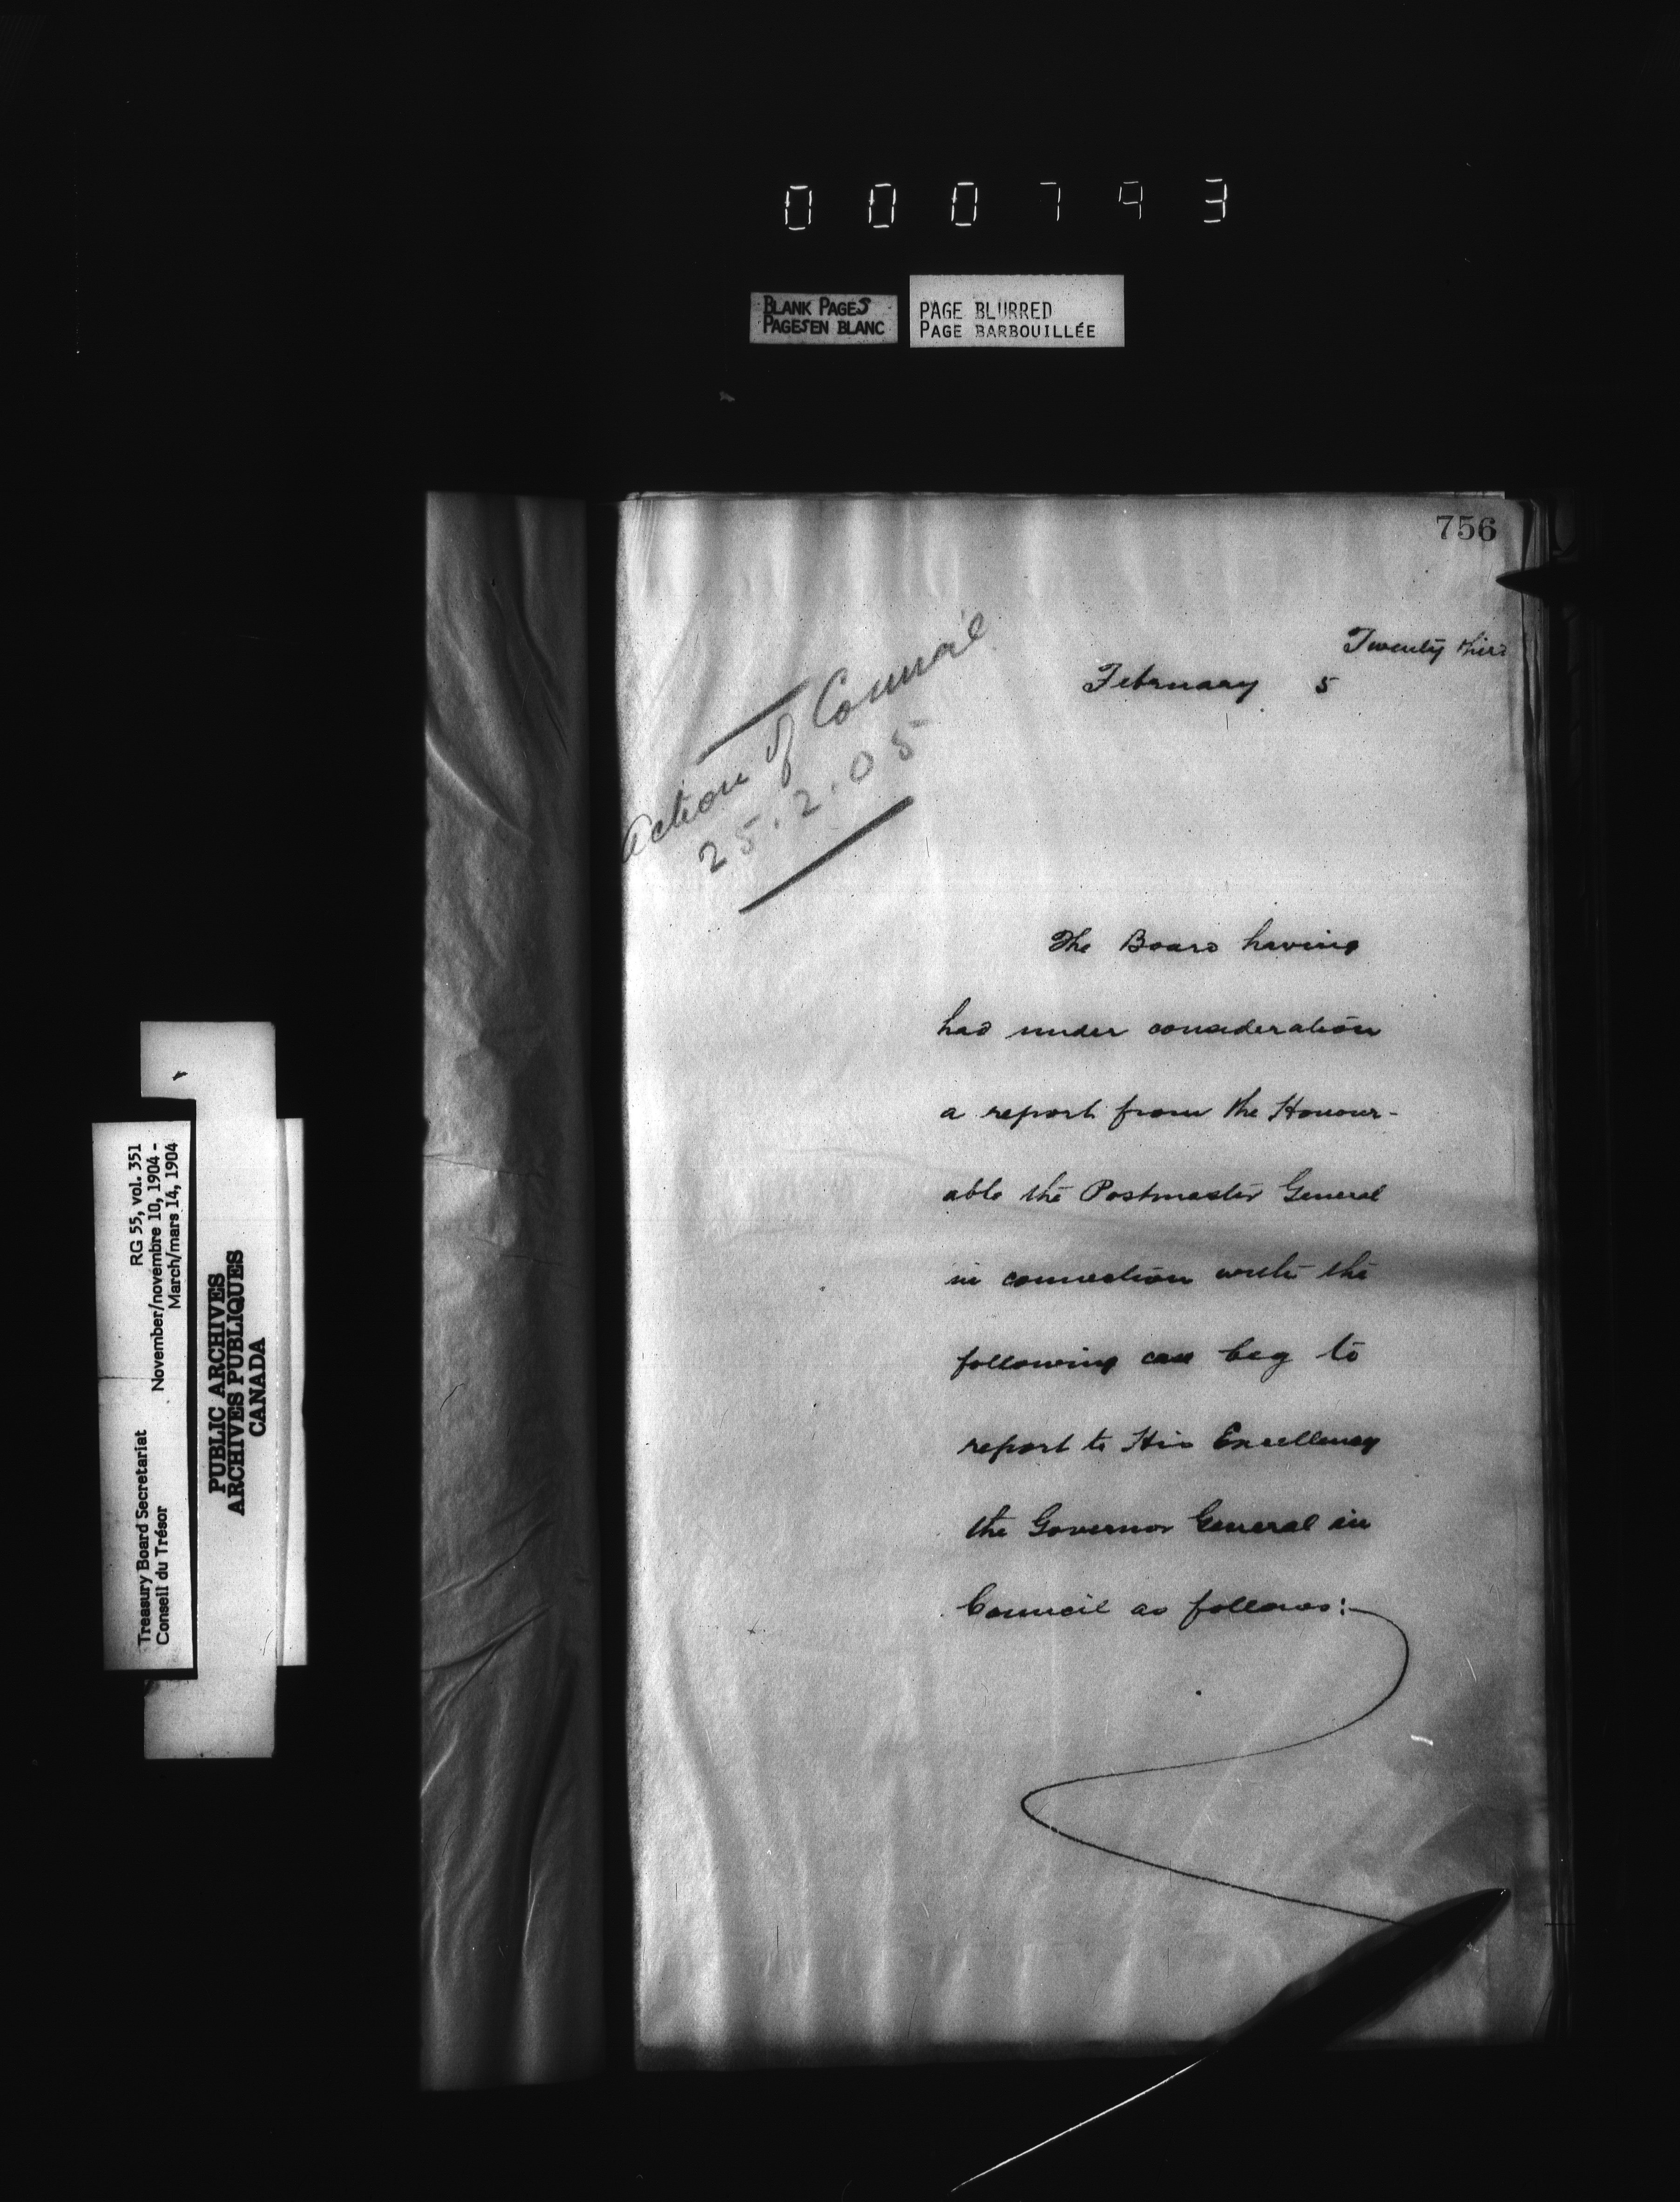 000793
BLANK PAGES
PAGES EN BLANC
PAGE BLURRED
PAGE BARBOUILLÉE
756
Twenty third
February 5
Action of Council
25.2.05
The Board having
had under consideration
a report from the Honour-
able the Postmaster General
in connection with the
following case beg to
report to His Excellency
the Governor General in
Council as follows:-
Treasury Board Secretariat RG 55, vol. 351
Conseil du Trésor November/novembre 10, 1904 -
March/mars 14, 1904
PUBLIC ARCHIVES
ARCHIVES PUBLIQUES
CANADA